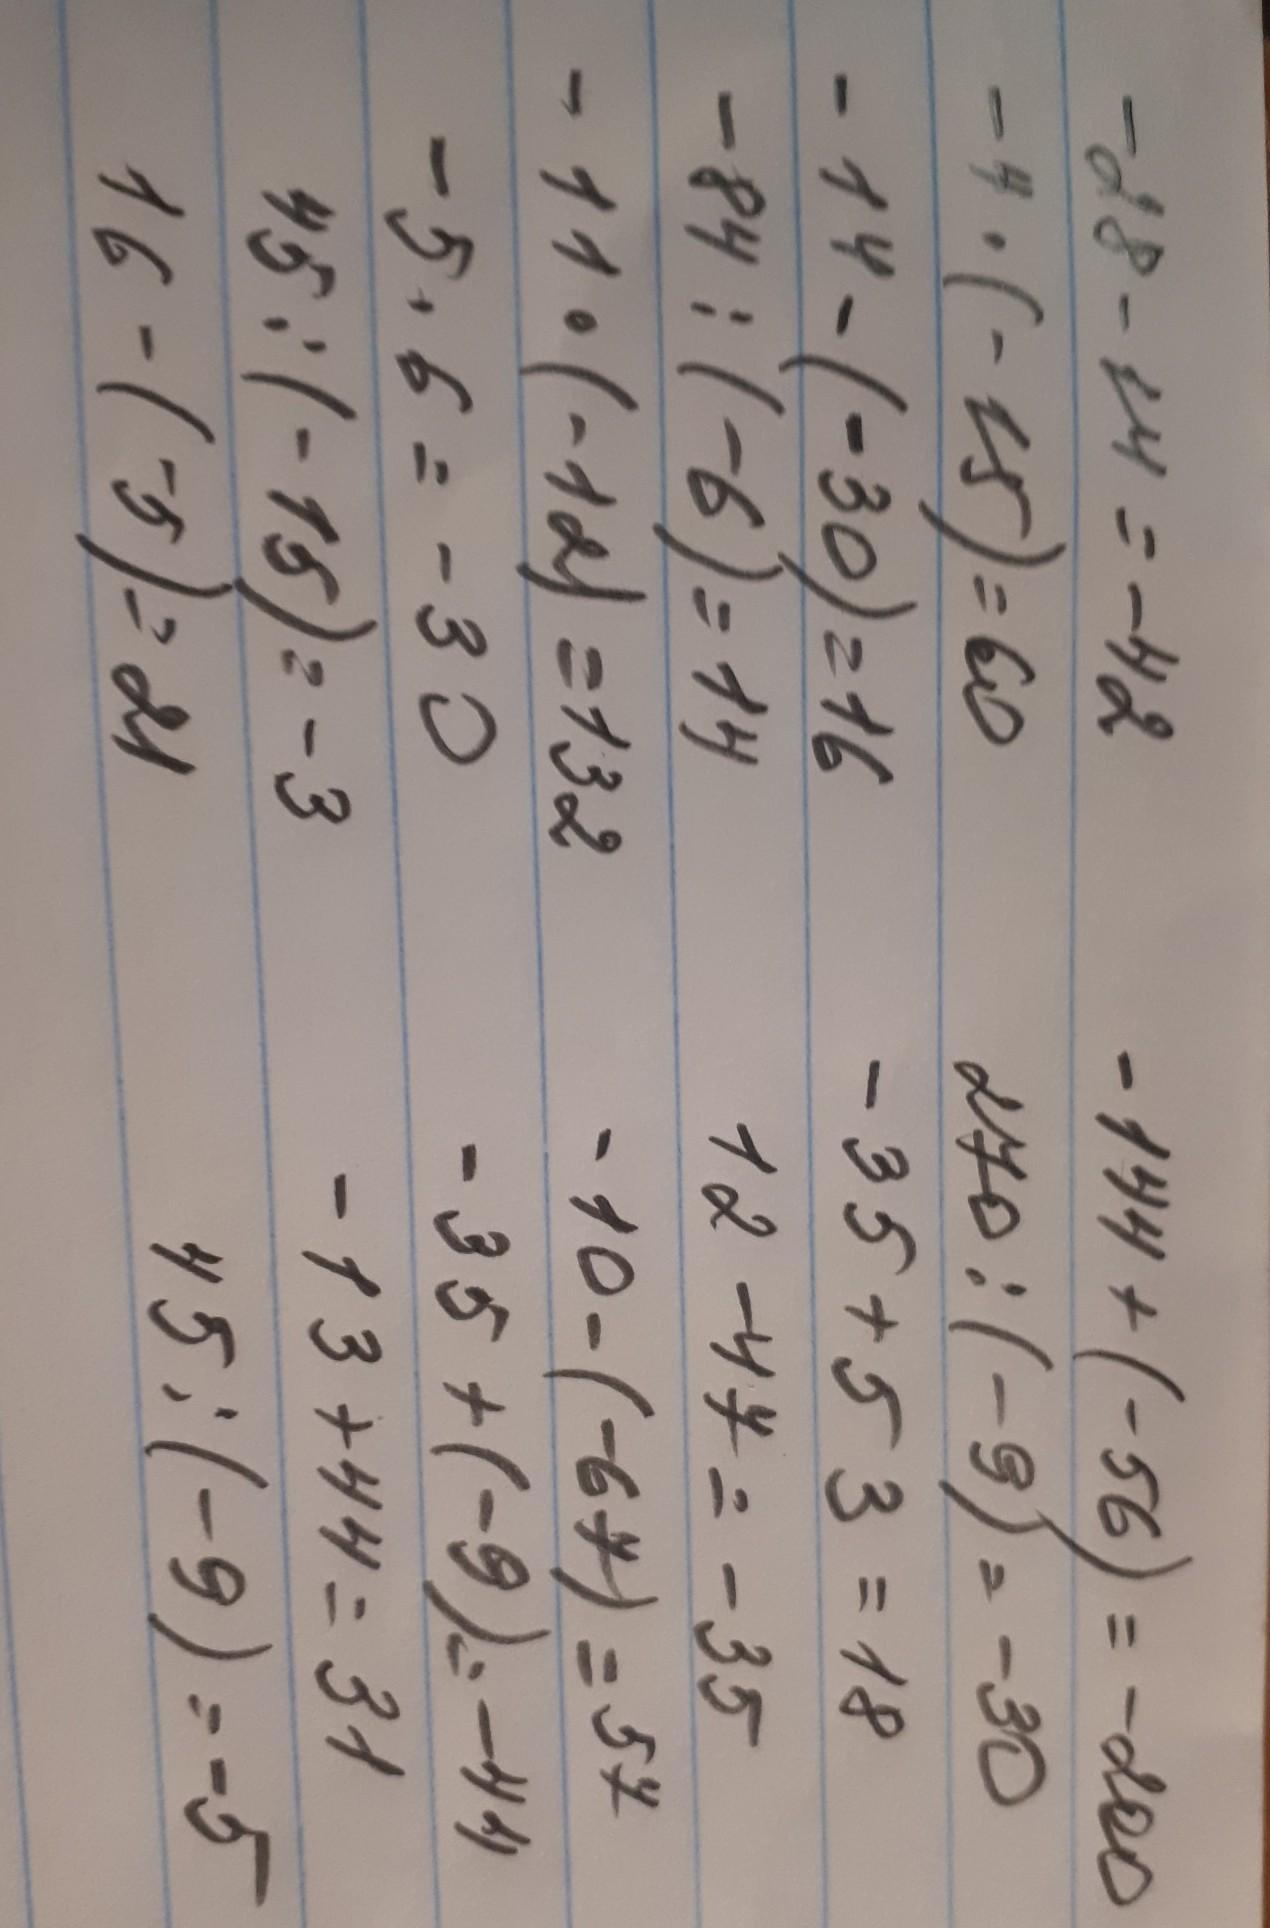 -28-14=-42
-4·(-15)=60
-14-(-30)=16
-84:(-6)=14
-11·(-12)=132
-5·6=-30
45:(-15)=-3
16-(-5)=21
-144+(-56)=-200
270:(-9)=-30
-35+53=18
12-47=-35
-10-(-67)=57
-35+(-9)=-44
-13+44=31
45:(-9)=-5